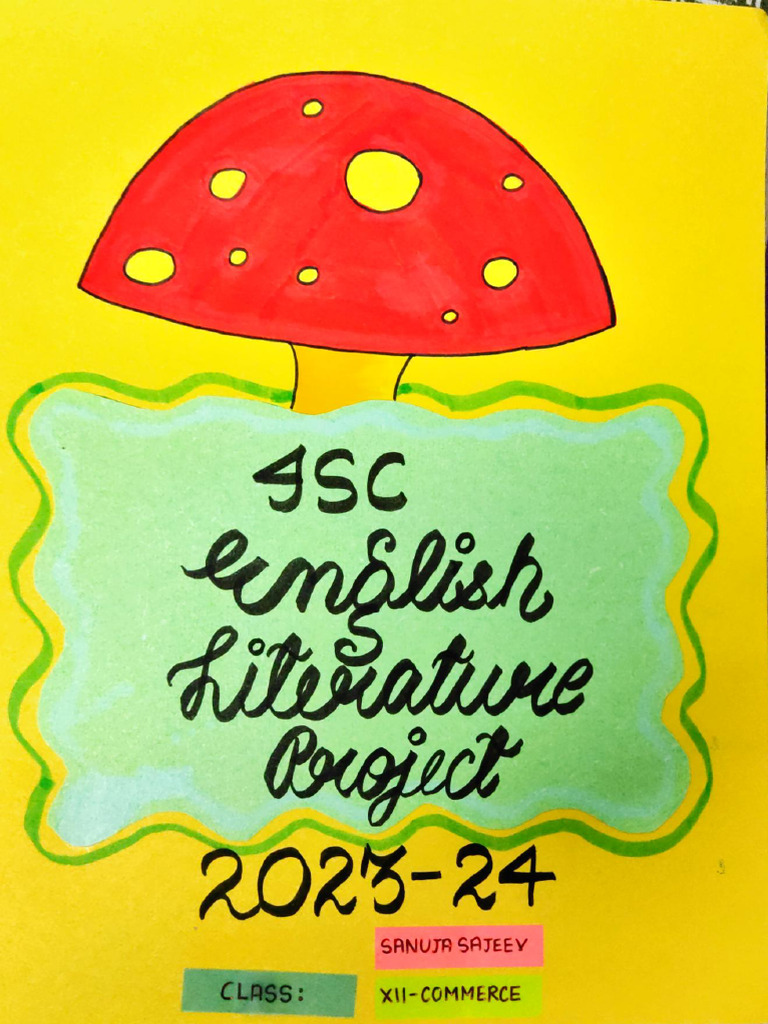 ISC
English
Literature
Project
2023-24
SANUJA SAJEEV
CLASS: XII-COMMERCE